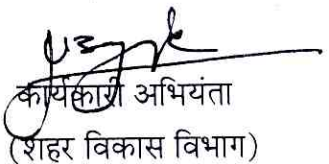 कार्यकारी अभियंता
(शहर विकास विभाग)